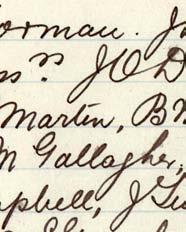 orman. J
ss? J O D
Martin, B M
M Gallagher,
pbell, J Gu